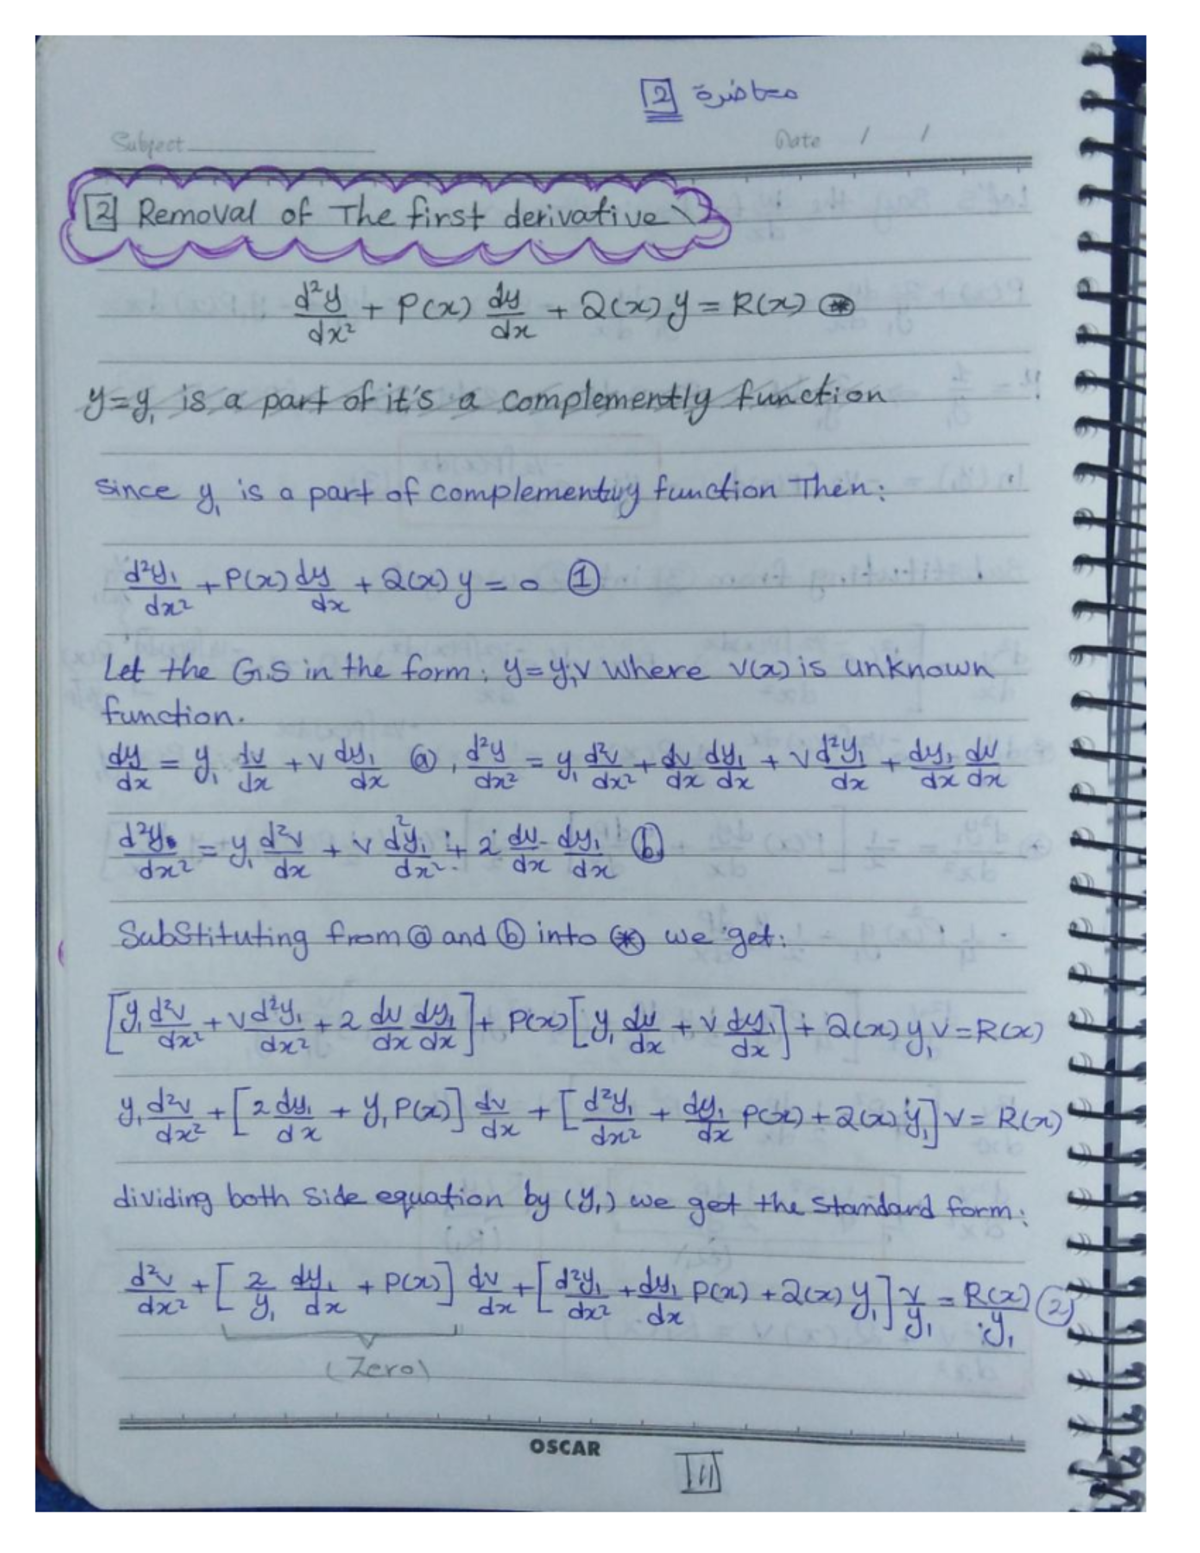 محاضرة [2]
Subject
Date / /
[2] Removal of The first derivative \
d²y/dx² + P(x) dy/dx + Q(x) y = R(x) (*)
y=y₁ is a part of it's a complemently function
Since y₁ is a part of complementuy function Then:
d²y₁/dx² + P(x) dy/dx + Q(x) y = 0 (1)
Let the G.S in the form: y=y₁v where v(x) is unknown
function.
dy/dx = y₁ dv/dx + v dy₁/dx (a), d²y/dx² = y₁ d²v/dx² + dv/dx dy₁/dx + v d²y₁/dx + dy₁/dx dv/dx
d²y/dx² = y₁ d²v/dx + v d²y₁/dx² + 2 dv/dx dy₁/dx (b)
Substituting from (a) and (b) into (*) we get:
[y₁ d²v/dx² + v d²y₁/dx² + 2 dv/dx dy₁/dx] + P(x)[y₁ dv/dx + v dy₁/dx] + Q(x) y₁ v = R(x)
y₁ d²v/dx² + [2 dy₁/dx + y₁ P(x)] dv/dx + [d²y₁/dx² + dy₁/dx P(x) + Q(x) y₁] v = R(x)
dividing both side equation by (y₁) we get the standard form:
d²v/dx² + [2/y₁ dy₁/dx + P(x)] dv/dx + [d²y₁/dx² + dy₁/dx P(x) + Q(x) y₁] v/y₁ = R(x)/y₁ (2)
(Zero)
OSCAR